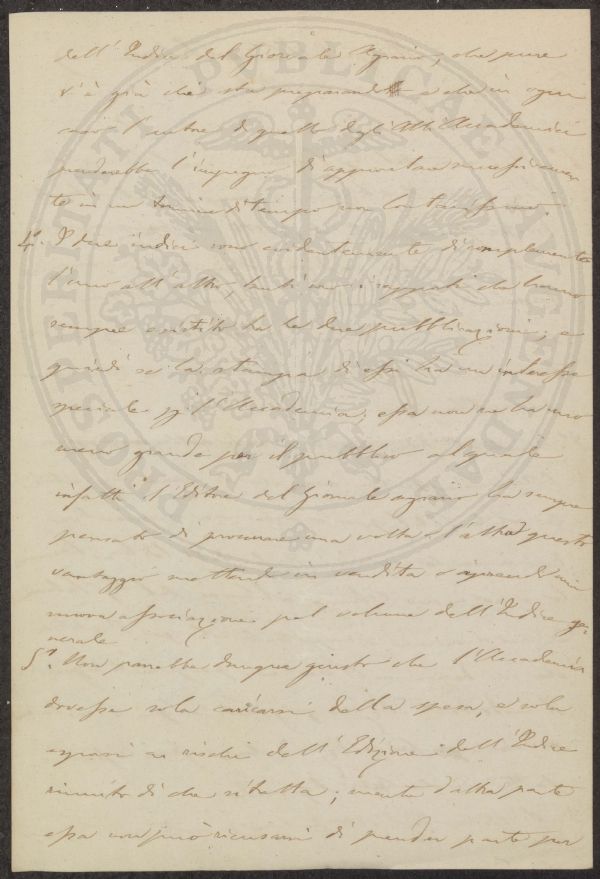 dell' Indice del Giornale Agrario, che pure
v'è già chi sta preparando e che in ogni
caso l'autore di quello degli Atti Accademici
prenderebbe l'impegno d'approntare successivamen
te in un termine di tempo non lontanissimo.
4°. I due indici sono evidentemente di complemento
l'uno all'altro, tanti sono i rapporti che hanno
sempre esistito tra le due pubblicazioni; e
quindi se la stampa di essi ha un interesse
speciale p l'Accademia, essa non ne ha uno
meno grande per il pubblico al quale
infatti l'Editore del Giornale agrario ha sempre
pensato di procurare una volta o l'altra questo
vantaggio mettendo in vendita o aprendo una
nuova associazione pel volume dell'Indice ge
nerale
5°. Non parrebbe dunque giusto che l'Accademia
dovesse sola caricarsi della spesa, e sola
esporsi ai rischi dell'Edizione dell'Indice
riunito di che si tratta; mentre d'altra parte
essa non può ricusarsi di prender parte per
PROSPERITATI PUBLICAE AUGENDAE